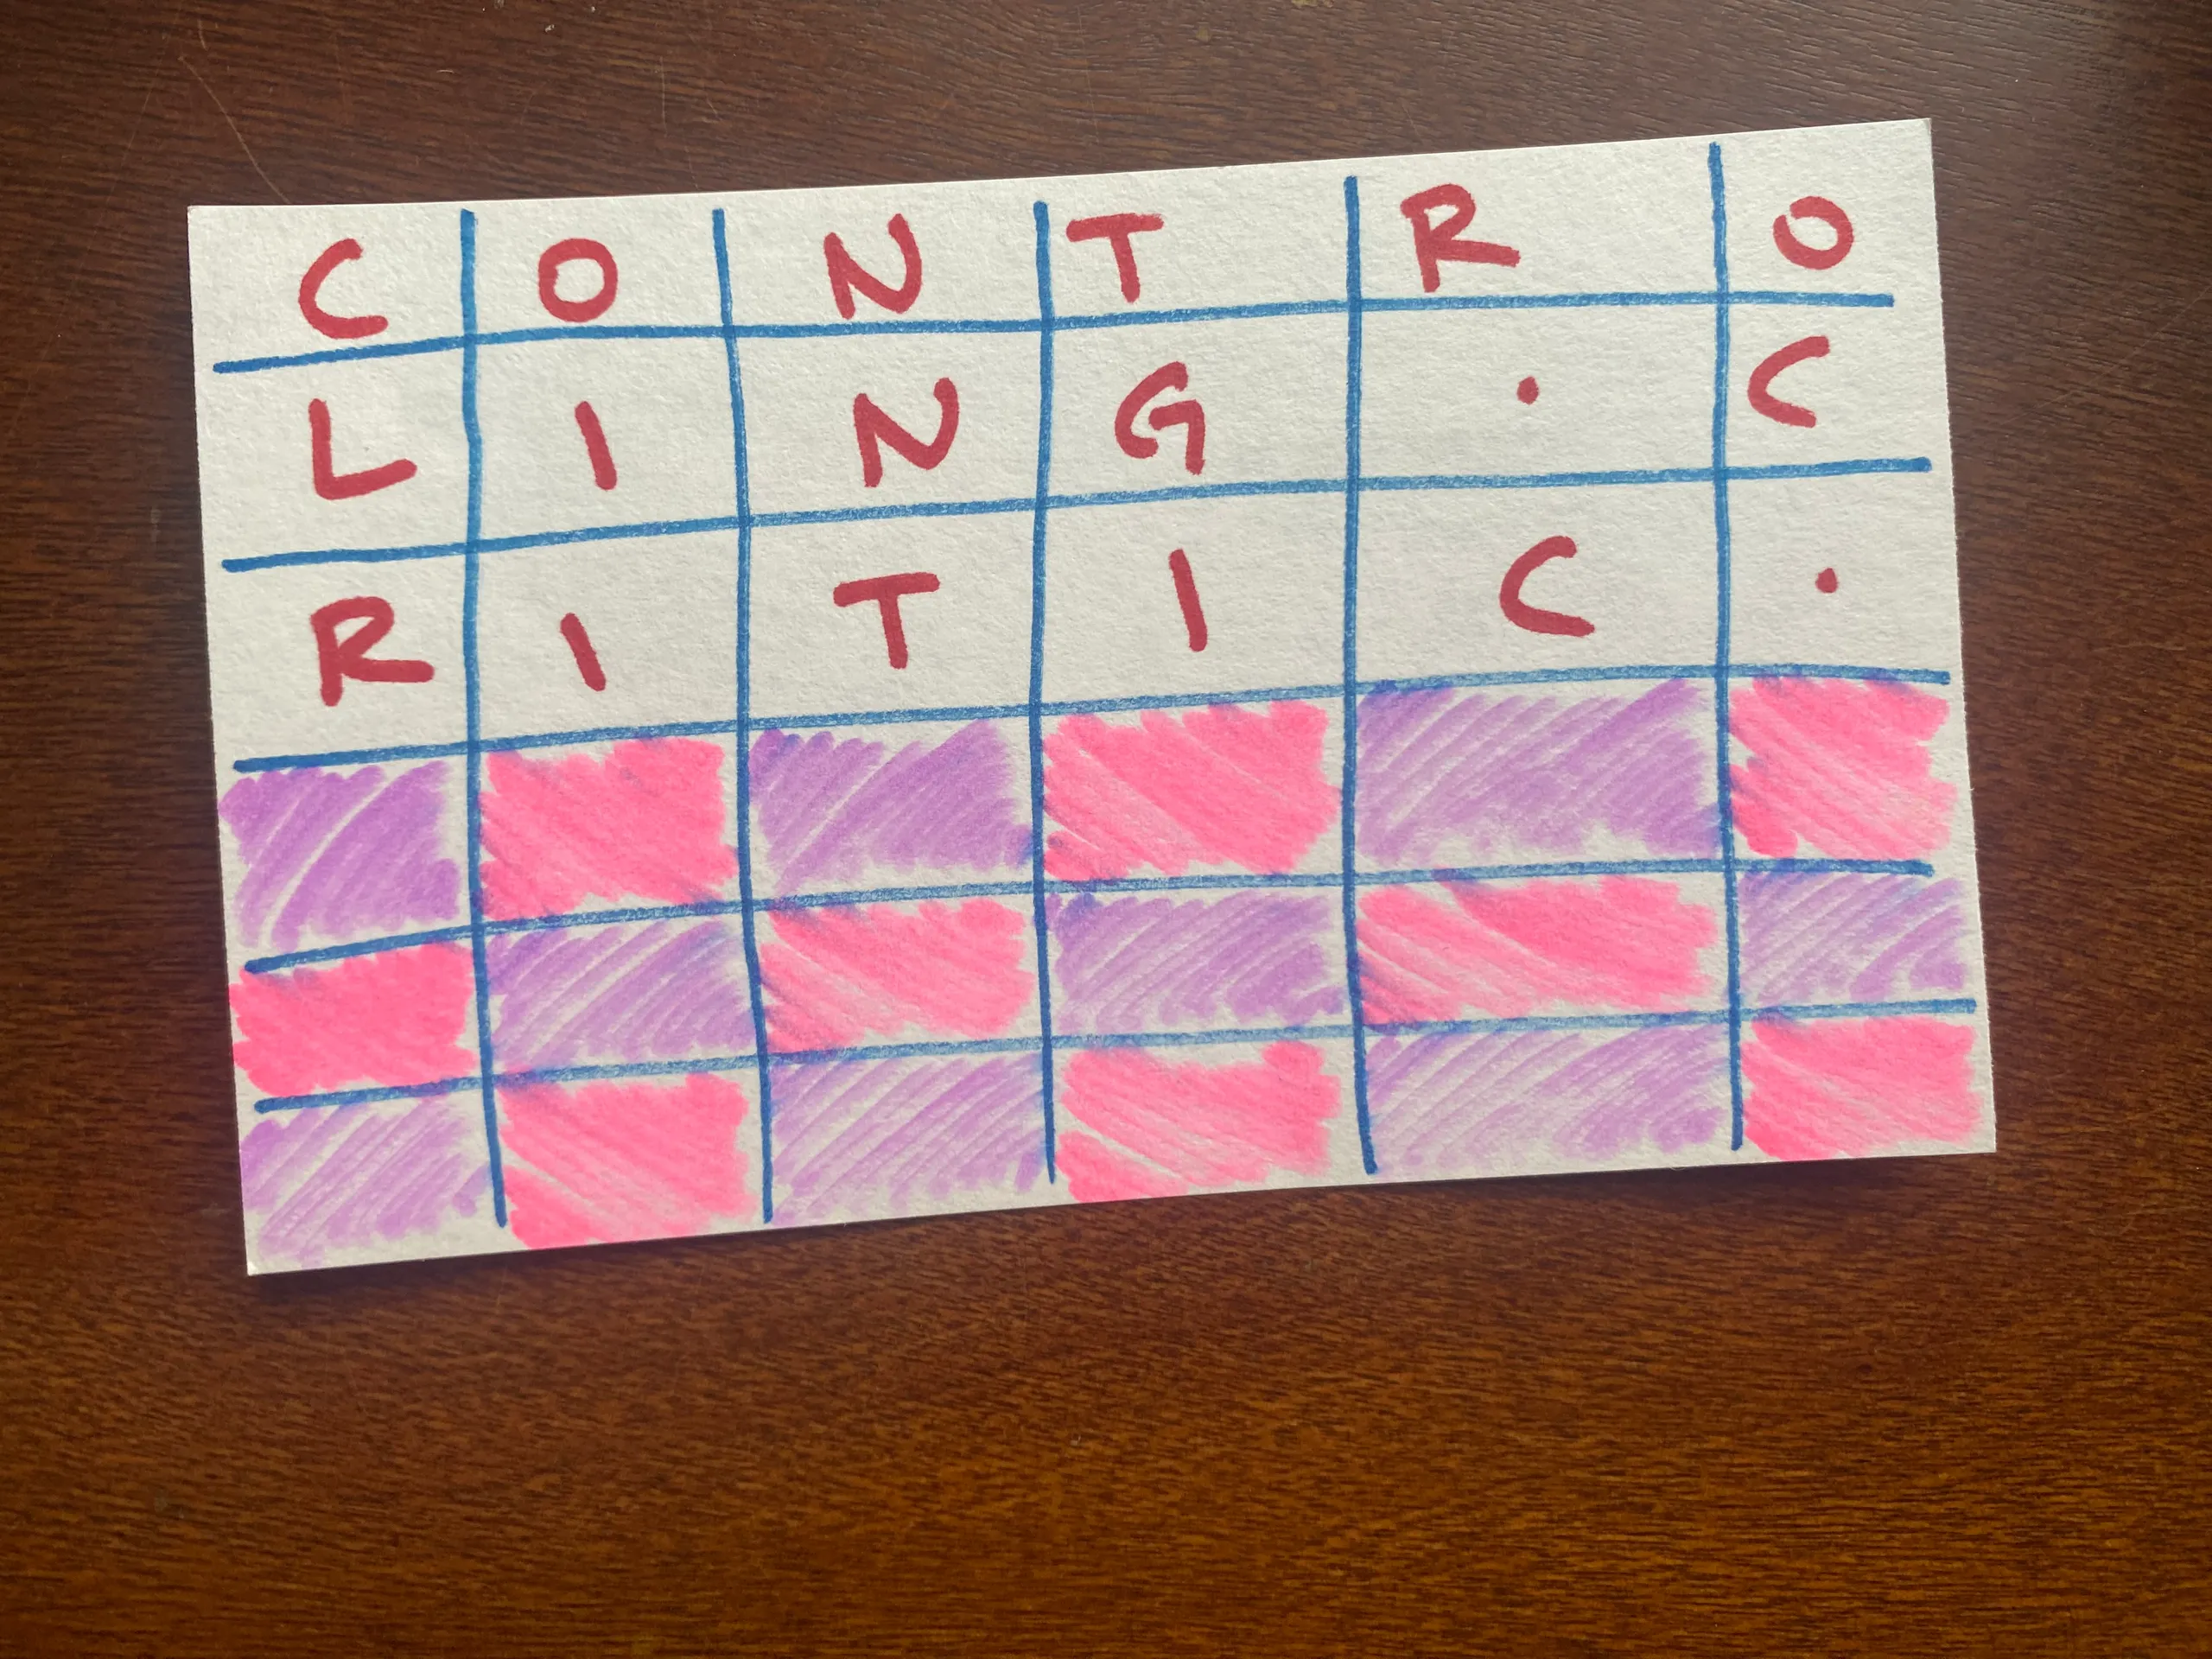 C O N T R O
L I N G . C
R I T I C .